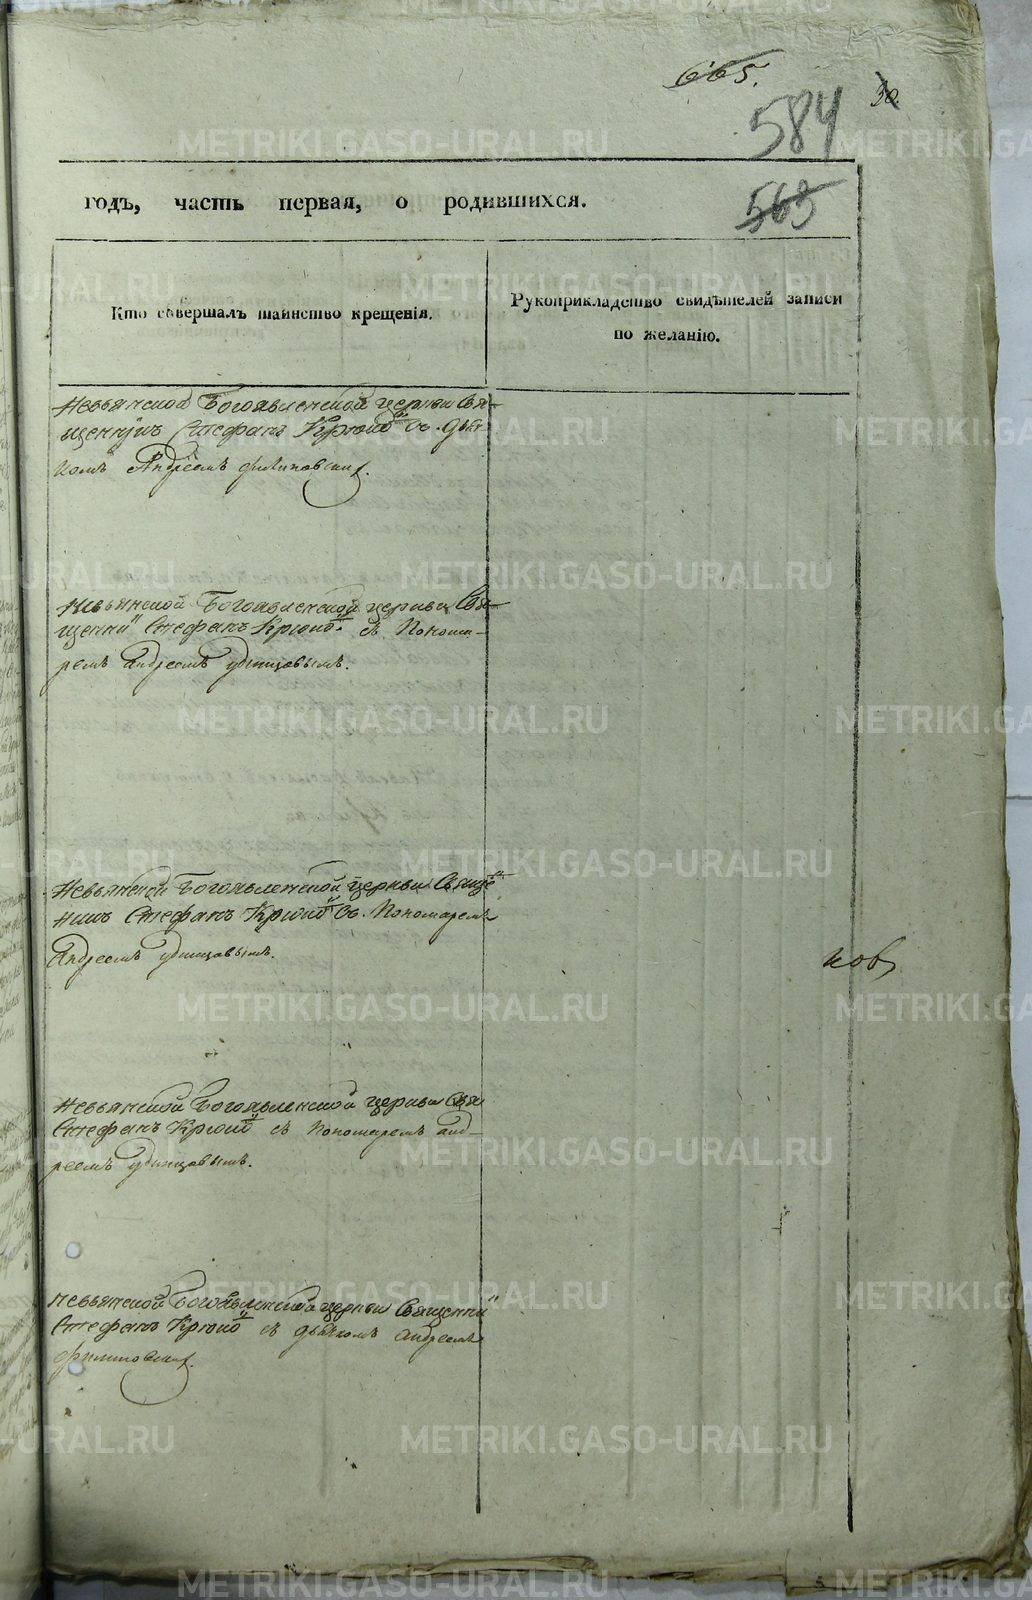 665.
30.
584
годъ, часть первая, о родившихся.
563
Кто совершалъ таинство крещенія.
Рукоприкладство свидѣтелей записи
по желанію.
Невьянской Богоявленской церкви Свя-
щенникъ Стефанъ Крюко съ дья-
комъ Андреемъ
Невьянской Богоявленской церкви Свя-
щенни Стефанъ Крюко съ Понома-
ремъ Андреемъ Удинцовымъ.
Невьянской Богоявленской церкви Свяще
никъ Стефанъ Крюко съ Пономаремъ
Андреемъ Удинцовымъ.
Невьянской Богоявленской церкви Свя
Стефанъ Крюко съ Пономаремъ Анд-
реемъ Удинцовымъ.
Невьянской Богоявленской церкви Священни
Стефанъ Крюко съ дьячкомъ Андреемъ
METRIKI.GASO-URAL.RU